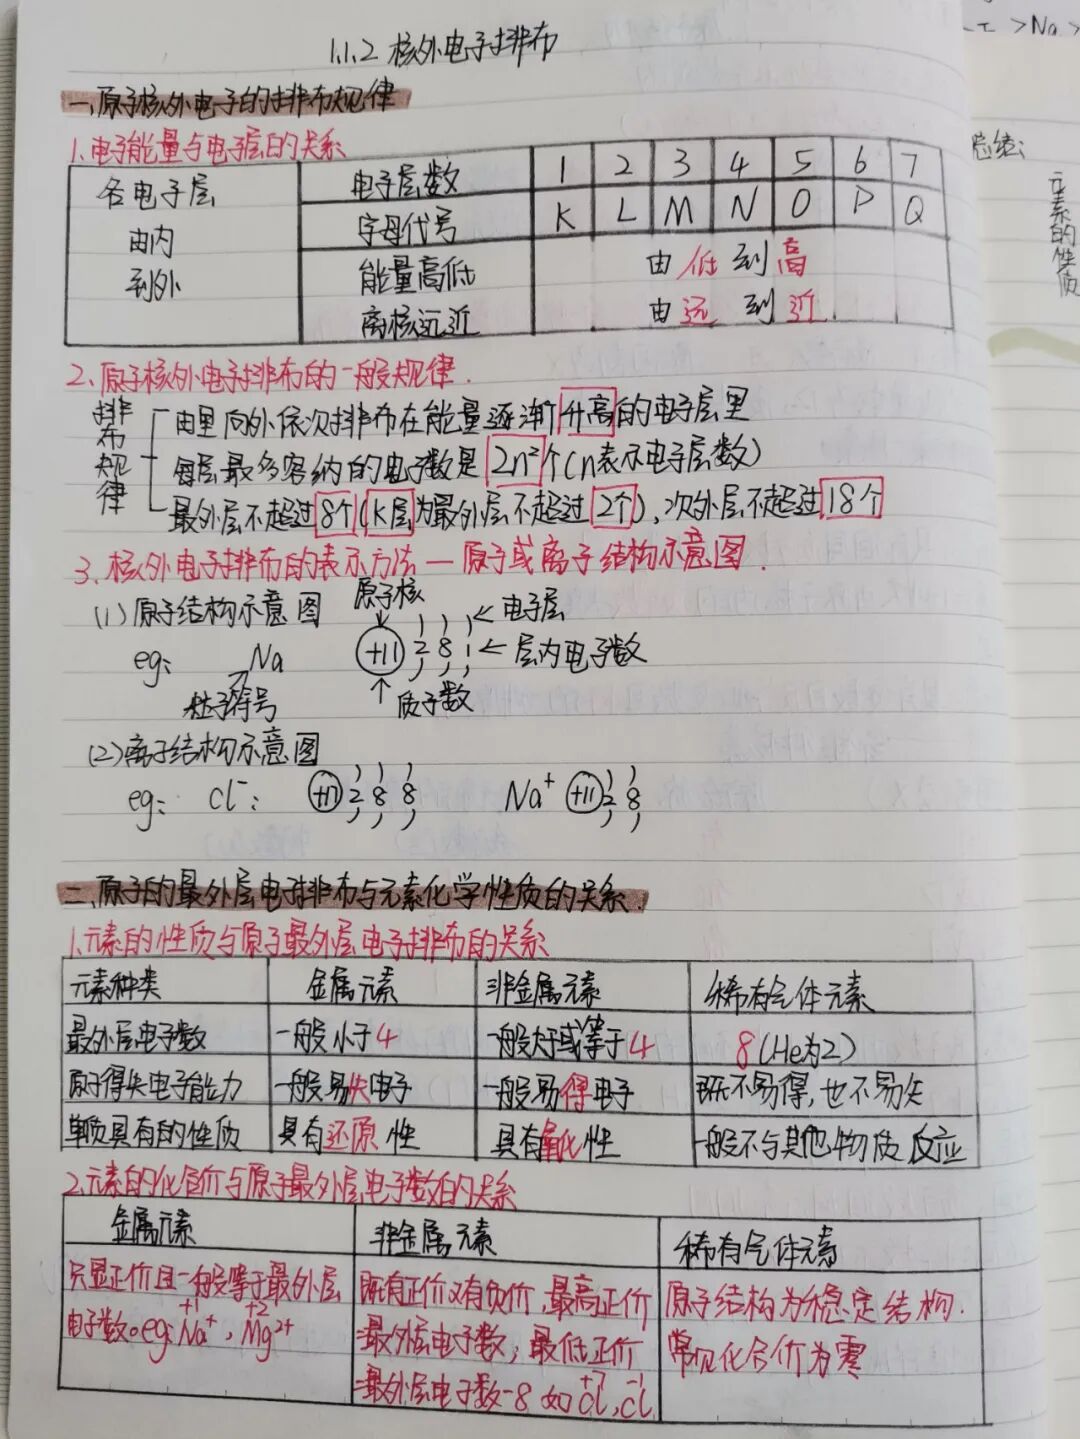 1.1.2 核外电子排布
一、原子核外电子的排布规律
1.电子能量与电子层的关系
各电子层由内到外 电子层数 1 2 3 4 5 6 7
字母代号 K L M N O P Q
能量高低 由低到高
离核远近 由远到近
2、原子核外电子排布的一般规律.
排布规律
由里向外依次排布在能量逐渐升高的电子层里
每层最多容纳的电子数是2n²个(n表示电子层数)
最外层不超过8个(K层为最外层不超过2个),次外层不超过18个
3、核外电子排布的表示方法—原子或离子结构示意图.
原子核
(1)原子结构示意图 ←电子层
eg: Na +11 2 8 1 ←层内电子数
粒子符号 质子数
(2)离子结构示意图
eg: Cl⁻: +17 2 8 8 Na⁺ +11 2 8
二、原子的最外层电子排布与元素化学性质的关系
1.元素的性质与原子最外层电子排布的关系
元素种类 金属元素 非金属元素 稀有气体元素
最外层电子数 一般小于4 一般大于或等于4 8(He为2)
原子得失电子能力 一般易失电子 一般易得电子 既不易得,也不易失
单质具有的性质 具有还原性 具有氧化性 一般不与其他物质反应
2.元素的化合价与原子最外层电子数的关系
金属元素 非金属元素 稀有气体元素
只显正价且一般等于最外层 既有正价又有负价,最高正价 原子结构为稳定结构.
+1 +2
电子数。eg:Na⁺,Mg²⁺ =最外层电子数,最低正价 常见化合价为零
+7 -1
=最外层电子数-8 如Cl,Cl
>Na>
总结:
元素的性质